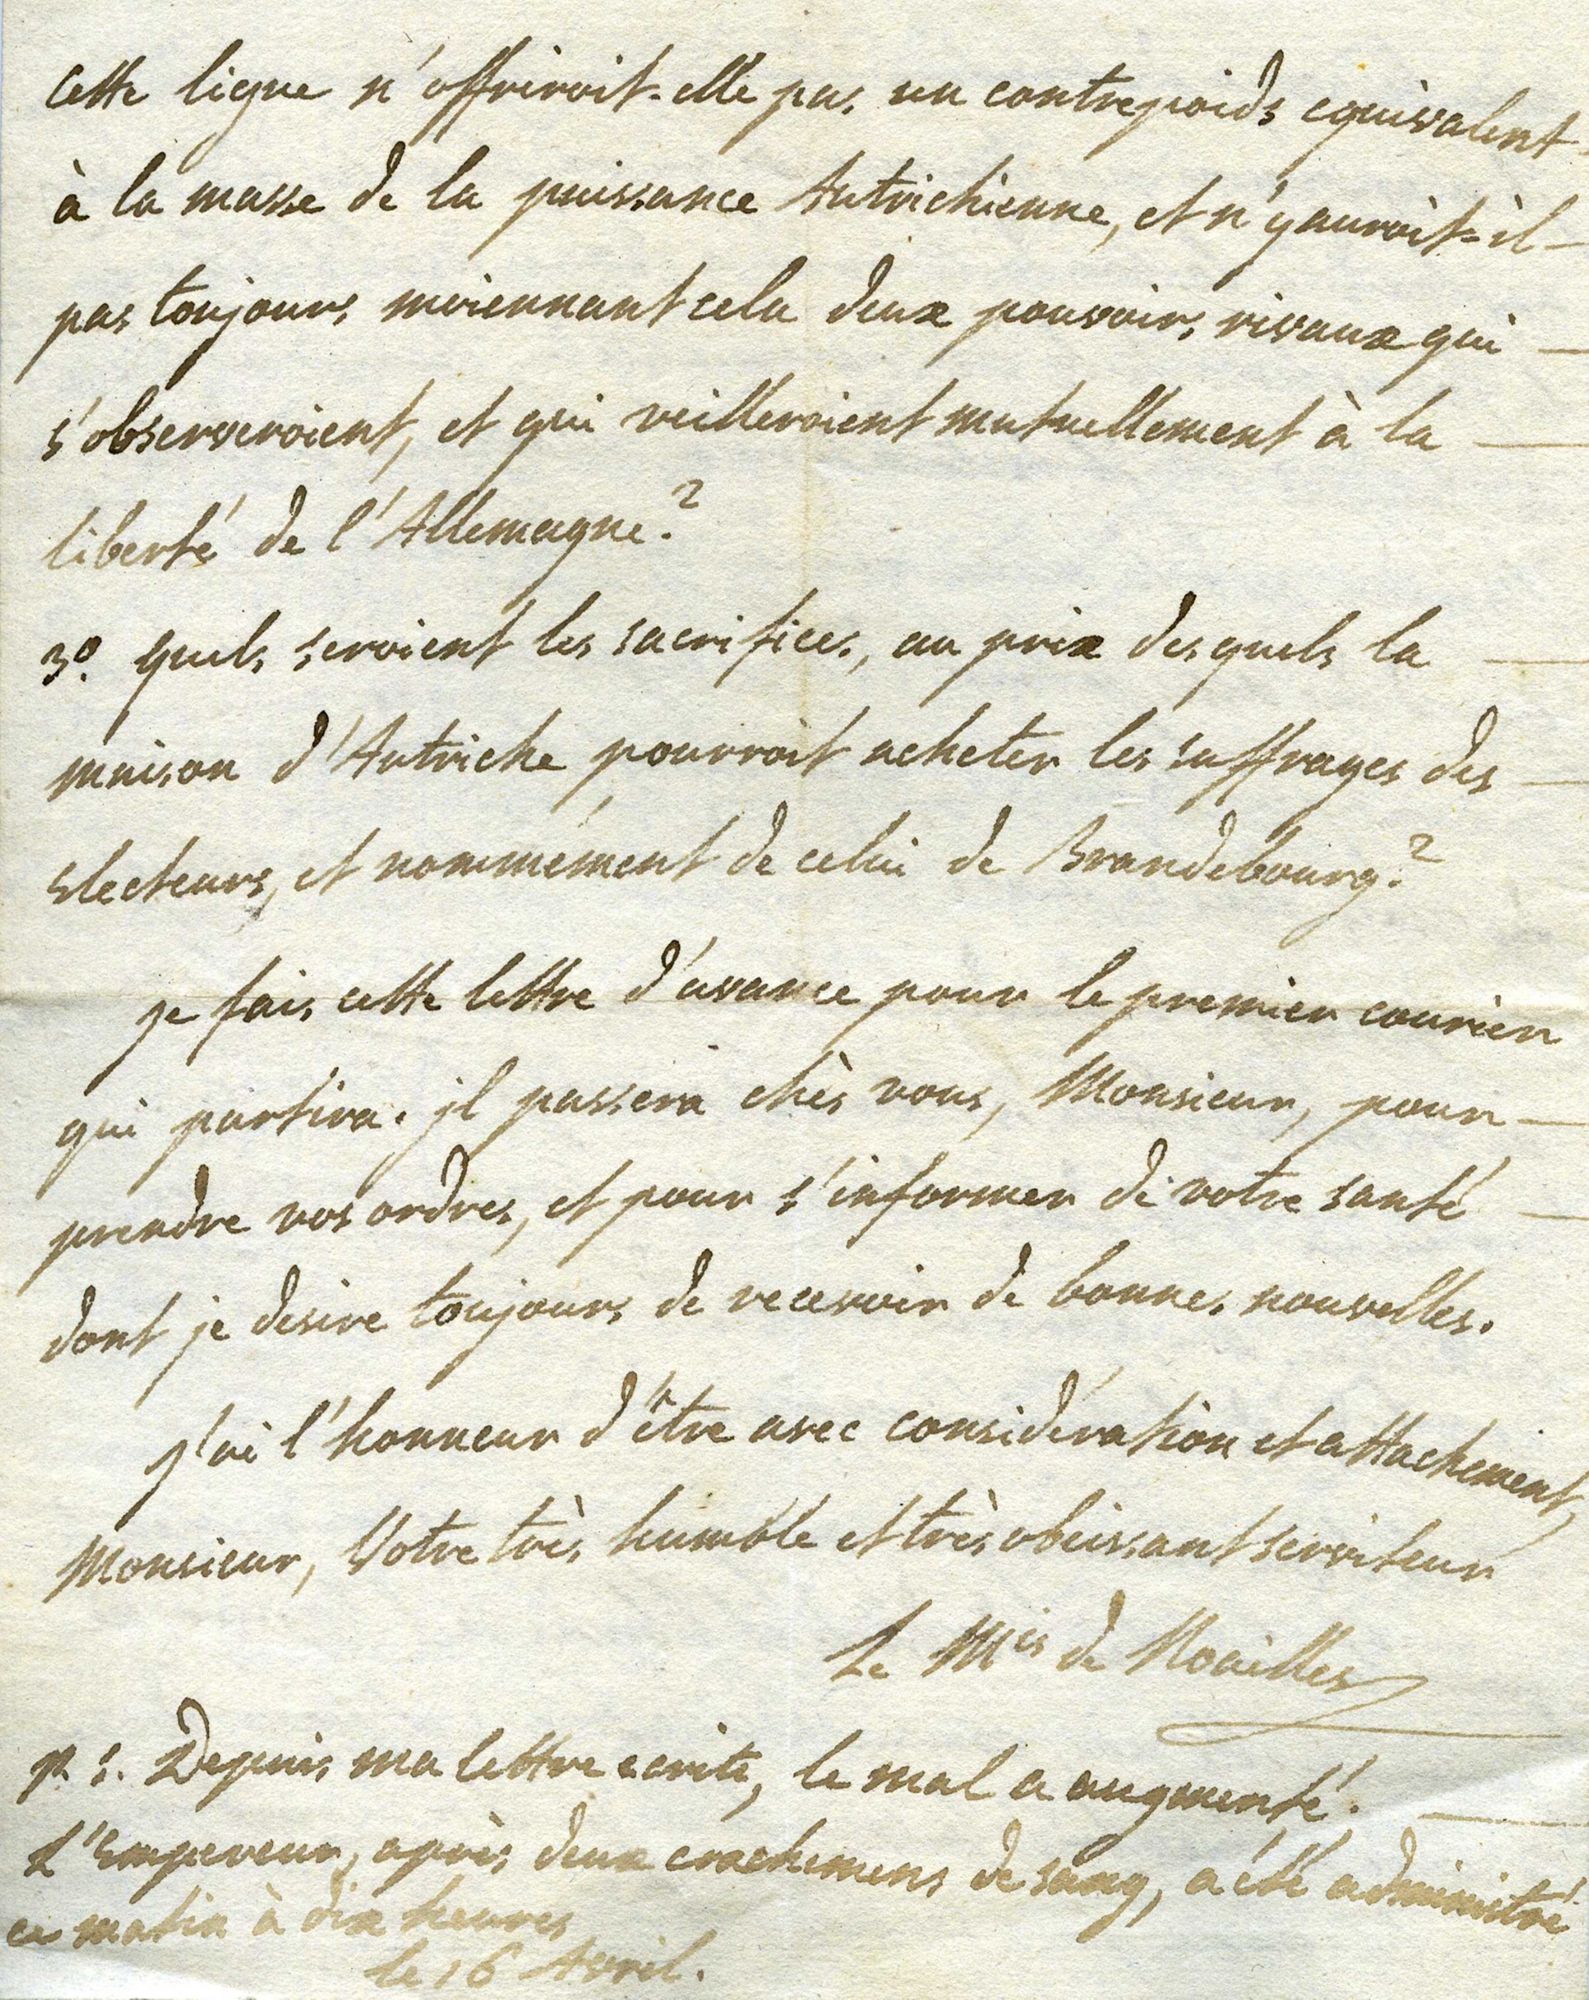 Cette ligue n'offriroit-elle pas un contrepoids equivalent
à la masse de la puissance Autrichienne, et n'y auroit-il
pas toujours moiennant cela deux pouvoirs rivaux qui
s'observeroient, et qui veilleroient mutuellement à la
liberté de l'Allemagne?
3º. quels seroient les sacrifices, au prix desquels la
maison d'Autriche pourroit acheter les suffrages des
Electeurs, et nommément de celui de Brandebourg?
je fais cette lettre d'avance pour le premier courier
qui partira. jl passera chès vous, Monsieur, pour
prendre vos ordres, et pour s'informer de votre santé
dont je desire toujours de recevoir de bonnes nouvelles.
J'ai l'honneur d'être avec considération et attachement,
Monsieur, Votre très humble et très obeissant serviteur
Le Mis de Noailles
p. s. Depuis ma lettre ecrite, le mal a augmenté.
L'Empereur, après deux crachemens de sang, a été administré
ce matin à dix heures
le 16 Avril.